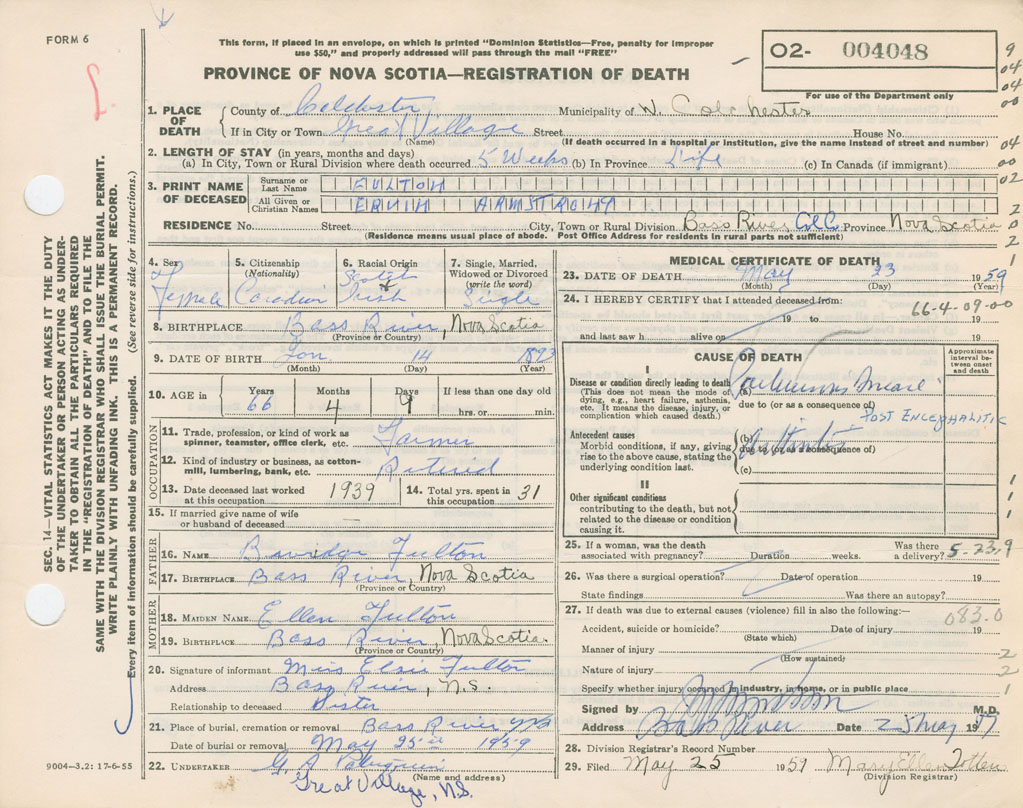 FORM 6
This form, if placed in an envelope, on which is printed "Dominion Statistics—Free, penalty for improper
use $50," and properly addressed will pass through the mail "FREE"
PROVINCE OF NOVA SCOTIA—REGISTRATION OF DEATH
02- 004048
For use of the Department only
9
04
04
00
04
00
02
2
2
0
2
1
1
1
2
2
1
SEC. 14—VITAL STATISTICS ACT MAKES IT THE DUTY
OF THE UNDERTAKER OR PERSON ACTING AS UNDER-
TAKER TO OBTAIN ALL THE PARTICULARS REQUIRED
IN THE "REGISTRATION OF DEATH" AND TO FILE THE
SAME WITH THE DIVISION REGISTRAR WHO SHALL ISSUE THE BURIAL PERMIT.
WRITE PLAINLY WITH UNFADING INK. THIS IS A PERMANENT RECORD.
Every item of information should be carefully supplied. (See reverse side for instructions.)
1. PLACE OF DEATH County of Colchester Municipality of W. Colchester
If in City or Town Great Village Street House No.
(Name) (If death occurred in a hospital or institution, give the name instead of street and number)
2. LENGTH OF STAY (in years, months and days)
(a) In City, Town or Rural Division where death occurred 5 Weeks (b) In Province Life (c) In Canada (if immigrant)
3. PRINT NAME OF DECEASED Surname or Last Name FULTON
All Given or Christian Names ERVIN ARMSTRONG
RESIDENCE No. Street City, Town or Rural Division Bass River, Col. C Province Nova Scotia
(Residence means usual place of abode. Post Office Address for residents in rural parts not sufficient)
4. Sex Female
5. Citizenship (Nationality) Canadian
6. Racial Origin Scotch & Irish
7. Single, Married, Widowed or Divorced (write the word) Single
8. BIRTHPLACE Bass River, Nova Scotia
(Province or Country)
9. DATE OF BIRTH Jan 14 1893
(Month) (Day) (Year)
10. AGE in Years 66 Months 4 Days 9 If less than one day old hrs. or min.
OCCUPATION
11. Trade, profession, or kind of work as spinner, teamster, office clerk, etc. Farmer
12. Kind of industry or business, as cotton-mill, lumbering, bank, etc. Retired
13. Date deceased last worked at this occupation 1939
14. Total yrs. spent in this occupation 31
15. If married give name of wife or husband of deceased
FATHER
16. NAME Fulton
17. BIRTHPLACE Bass River, Nova Scotia
(Province or Country)
MOTHER
18. MAIDEN NAME Ellen Fulton
19. BIRTHPLACE Bass River, Nova Scotia
(Province or Country)
20. Signature of informant Miss Elsie Fulton
Address Bass River, N.S.
Relationship to deceased Sister
21. Place of burial, cremation or removal Bass River N.S
Date of burial or removal May 25th 1959
22. UNDERTAKER G. A
(Name and address)
Great Village, N.S.
9004-3.2: 17-6-55
MEDICAL CERTIFICATE OF DEATH
23. DATE OF DEATH May 23 1959
(Month) (Day) (Year)
24. I HEREBY CERTIFY that I attended deceased from:
66-4-09-00
19 to 19
and last saw h alive on 19
CAUSE OF DEATH
Approximate interval between onset and death
I
Disease or condition directly leading to death (a) Parkinsons Disease
(This does not mean the mode of dying, e.g., heart failure, asthenia, etc. It means the disease, injury, or complication which caused death.)
due to (or as a consequence of)
POST ENCEPHALITIC
Antecedent causes (b)
Morbid conditions, if any, giving rise to the above cause, stating the underlying condition last.
due to (or as a consequence of)
(c)
II
Other significant conditions
contributing to the death, but not related to the disease or condition causing it.
25. If a woman, was the death associated with pregnancy? Duration weeks. Was there a delivery? 5-23,9
26. Was there a surgical operation? Date of operation 19
State findings Was there an autopsy?
27. If death was due to external causes (violence) fill in also the following:—
083.0
Accident, suicide or homicide? Date of injury 19
(State which)
Manner of injury
(How sustained)
Nature of injury
Specify whether injury occurred in industry, in home, or in public place
Signed by M.D.
Address Bass River Date 25 May 1959
28. Division Registrar's Record Number
29. Filed May 25 1959 Mary Ellen Totten
(Division Registrar)